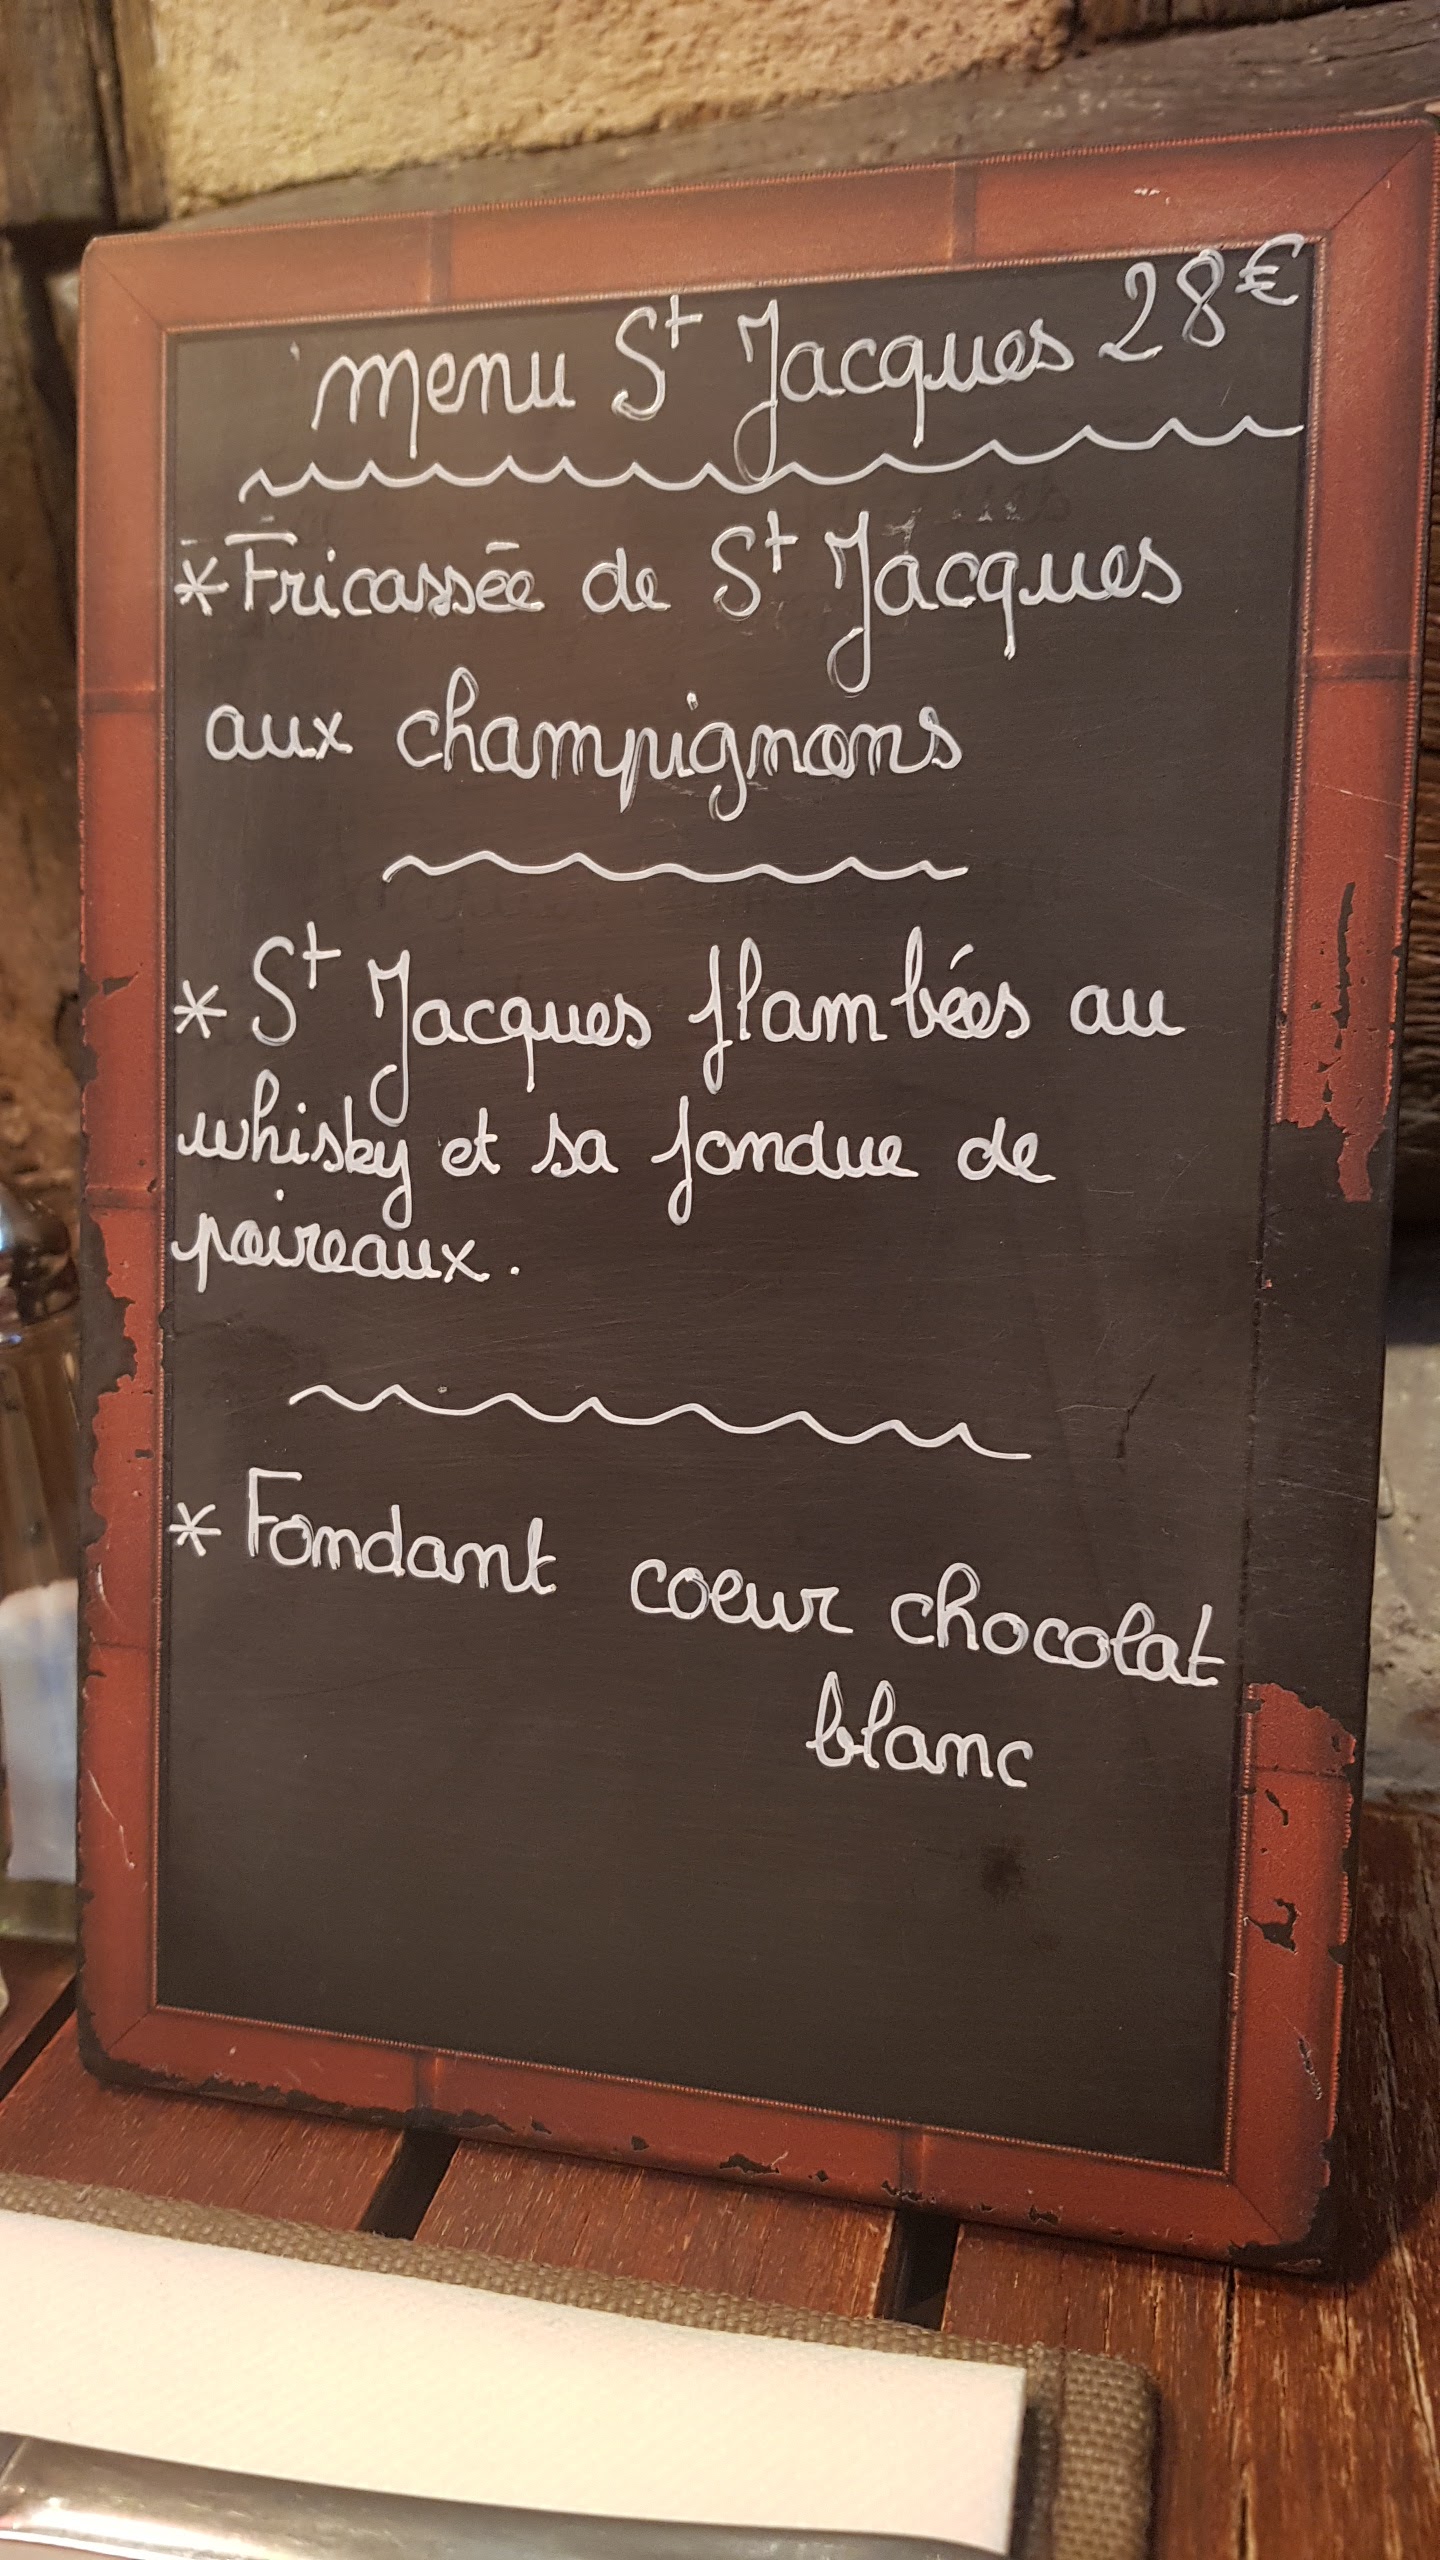 menu St Jacques 28€
* Fricassée de St Jacques
aux champignons
* St Jacques flambées au
whisky et sa fondue de
poireaux.
* Fondant coeur chocolat
blanc